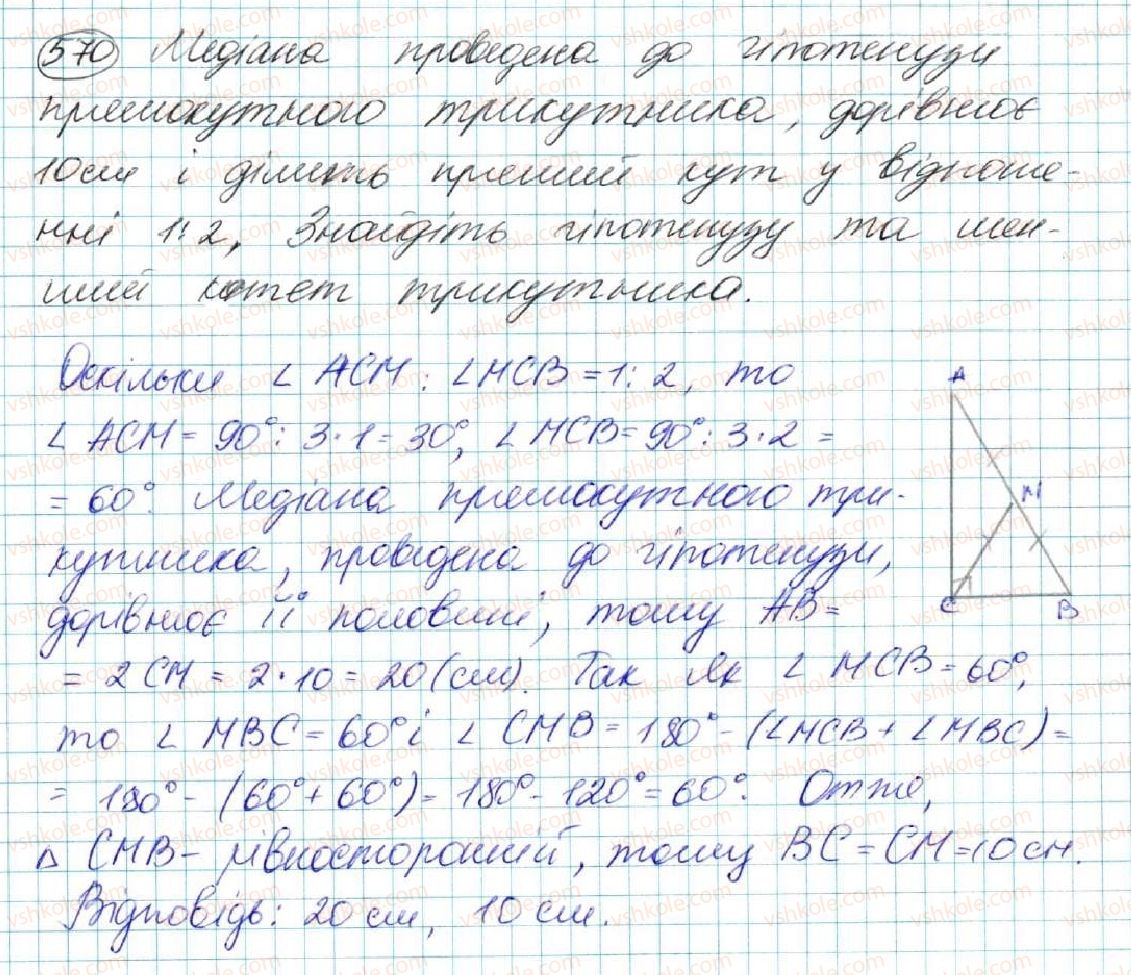 570 Медіана проведена до гіпотенузи
прямокутного трикутника, дорівнює
10см і ділить прямий кут у відноше-
нні 1:2, Знайдіть гіпотенузу та мен-
ший катет трикутника.
Оскільки ∠ ACM : ∠MCB = 1 : 2, то
∠ ACM = 90° : 3 · 1 = 30°, ∠ MCB = 90° : 3 · 2 =
= 60°. Медіана прямокутного три-
кутника, проведена до гіпотенузи,
дорівнює її половині, тому AB =
= 2 CM = 2 · 10 = 20 (см). Так як ∠ MCB = 60°,
то ∠ MBC = 60° і ∠ CMB = 180° - (∠MCB + ∠MBC) =
= 180° - (60° + 60°) = 180° - 120° = 60°. Отже,
Δ CMB - рівносторонній, тому BC = CM = 10 см.
Відповідь: 20 см, 10 см.
A
M
C
B
vshkole.com